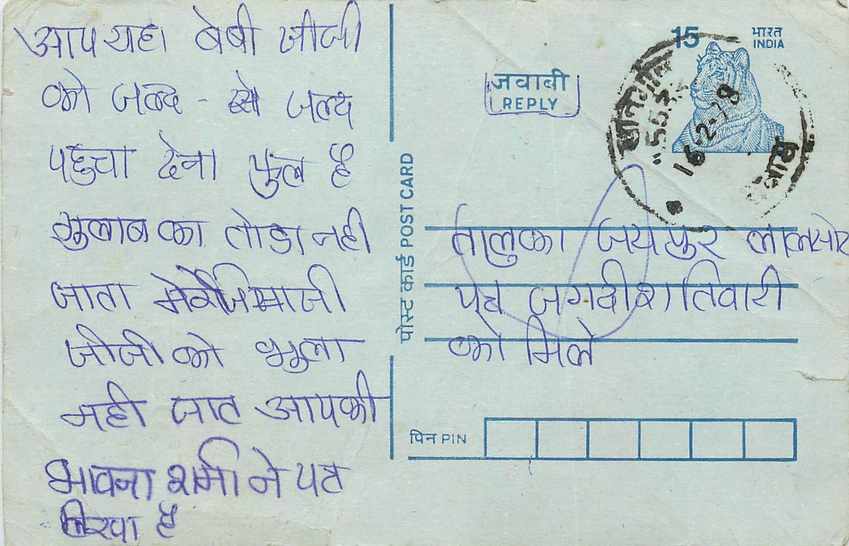 आप यहा बेबी जीजी
को जल्द - से जल्द
पहुचा देना फुल है
गुलाब का तोडा नही
जाता मेरे जिमाजी
जीजी को भुला
नही जात आपकी
भावना शर्मा ने पत्र
लिखा है
जवाबी
REPLY
15
भारत
INDIA
16-2-78
पोस्ट कार्ड POST CARD
तालुका जयपुर लालसोट
पत्र जगदीश तिवारी
को मिले
पिन PIN